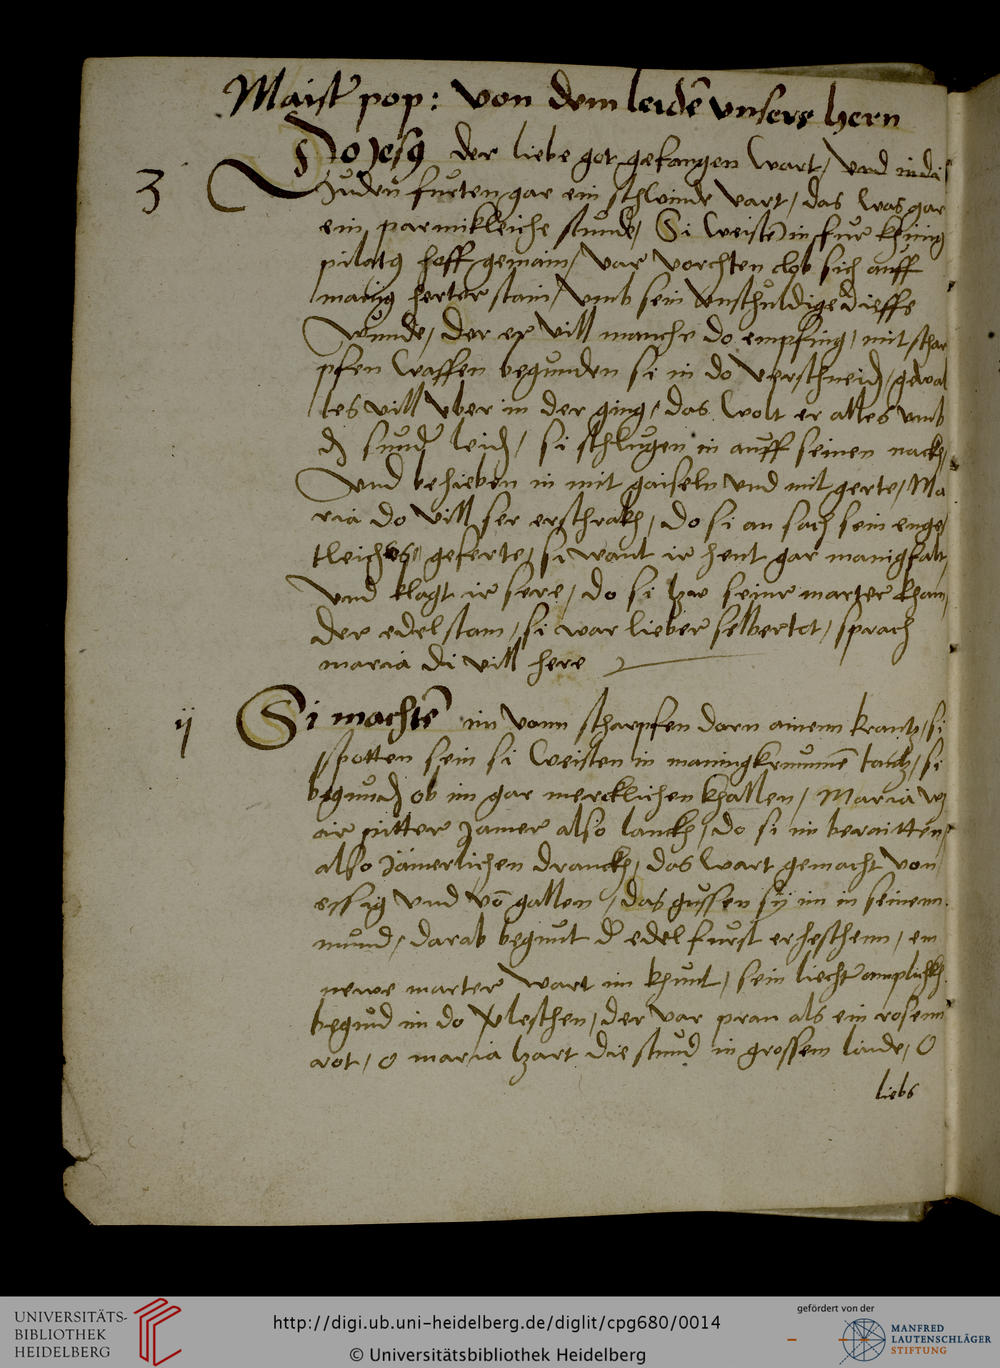 Maister pop: von dem leidē vnsers hern
3
Do Jesꝰ der liebe got gefangen wart / vnd in di
Juden fuͦrten gar ein schwinde vart / das was gar
ein parmikleiche stunde / Si weistē in fur khinig
pilatꝰ hoff gemain / var vorchten clob sich auff
manig herter stain / vmb sein vnschuldige dieffe
wunde / der er vill manche do empfing / mit schar
pfen waffen begunden si in do verschneidn / gewal
tes vill vber in der ging / das wolt er alles vmb
dy sundr leidn / si schlugen in auff seinen nackh /
vnd behieben in mit gaiseln vnd mit gerte / Ma
ria do vill ser erschrakh / do si an sach sein enge
tleiches geferte / si want ir hent gar manigfalt /
vnd klagt ir sere / do si zw seinr marter kham /
der edel stam / si war lieber selber tot / sprach
maria di vill here
ij
Si machtē im vonn scharpfen dorn ainenn krantz / si
spotten sein si weisten in maning krummē tantz / si
begundn ob im gar mercklichen khallen / Maria
air pitter Jamer also lanckh / do si im beraitten
also Jämerlichen dranckh / das wart gemacht von
essig vnd vō gallen / das gussen sy im in seinenn
mund / darab begunt der edel furst erheschenn / ein
newe marter wart im khunt / sein liechte amplickh
begund im do verleschen / der var pran als ein rosenn
rot / O maria zart die stund in grossem laide / O
liebs
UNIVERSITÄTS-
BIBLIOTHEK
HEIDELBERG
http://digi.ub.uni-heidelberg.de/diglit/cpg680/0014
© Universitätsbibliothek Heidelberg
gefördert von der
MANFRED
LAUTENSCHLÄGER
STIFTUNG